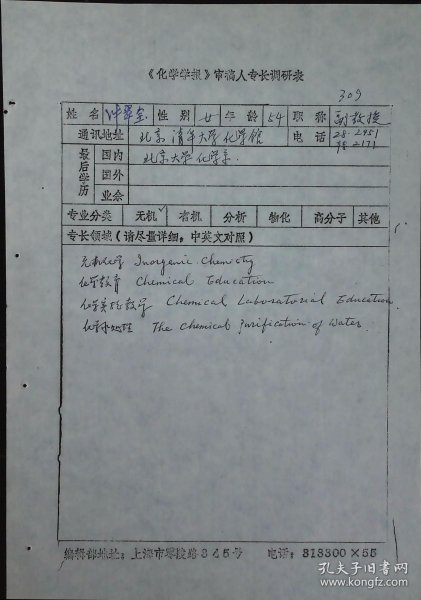 《化学学报》审稿人专长调研表
309
姓 名 性 别 女 年 龄 54 职 称 副教授
通讯地址 北京清华大学化学馆 电 话 28-2451
最后学历 国内 北京大学化学系
国外
业余
专业分类 无机✓ 有机 分析 物化 高分子 其他
专长领域(请尽量详细,中英文对照)
无机化学 Inorganic Chemistry
化学教育 Chemical Education
化学实验教学 Chemical Laboratorial Education
化学水处理 The Chemical Purification of Water.
编辑部地址:上海市零陵路345号 电话:313300×55
孔夫子旧书网
www.kongfz.com